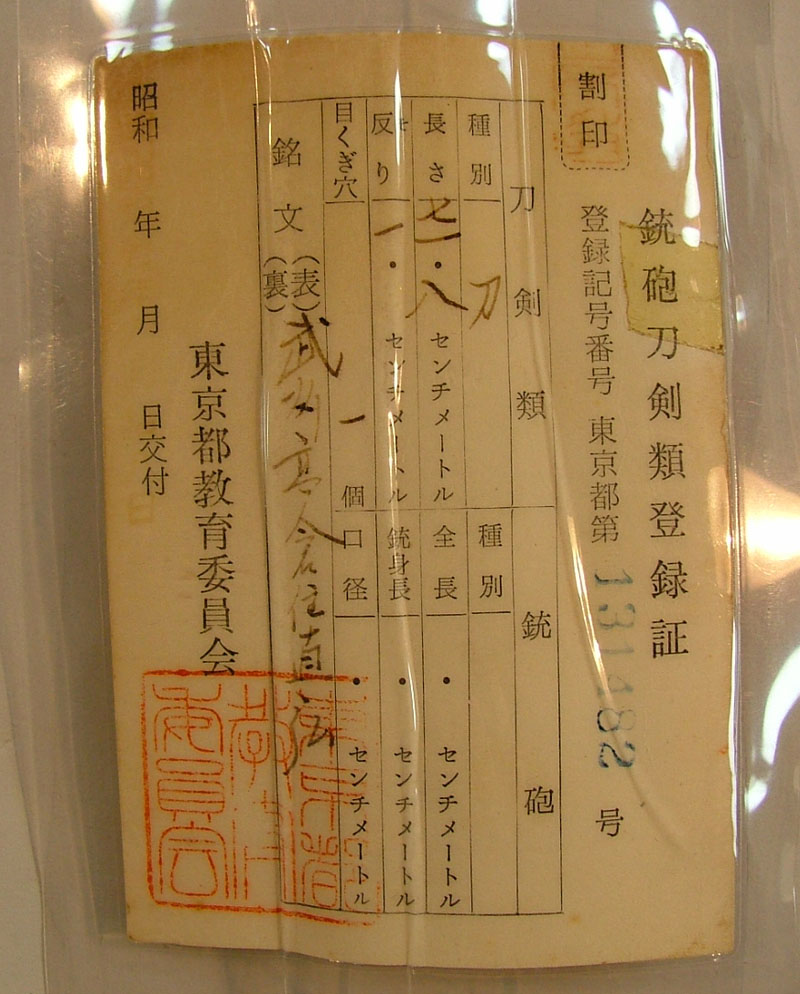 銃砲刀剣類登録証
割印
登録記号番号 東京都第 131482 号
刀剣類
銃砲
種別 刀
種別
長さ 七一・八 センチメートル
全長 ・ センチメートル
反り 一・ センチメートル
銃身長 ・ センチメートル
目くぎ穴 一 個
口径 ・ センチメートル
銘文 (表)(裏) 武 住直
東京都教育委員会
昭和 年 月 日交付
東京都教育委員会